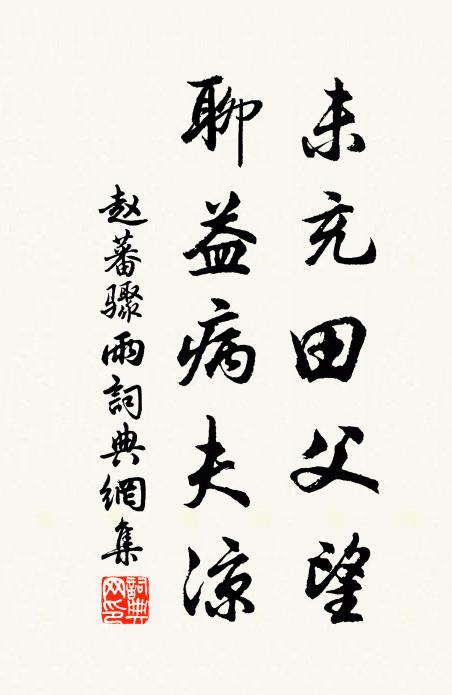 未充田父望
聊益病夫凉
赵蕃骤雨詞典網集
詞典网印